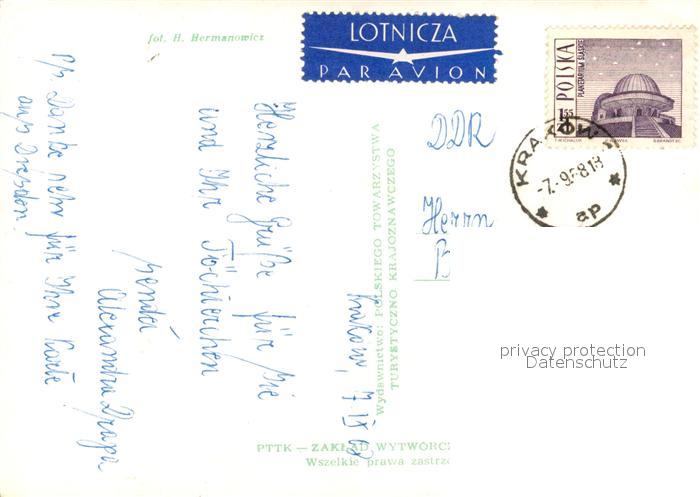 fot. H. Hermanowicz
LOTNICZA
PAR AVION
POLSKA
PLANETARIUM ŚLĄSKIE
1.55
ZŁ
KRAKÓW
-7.-9.68.18
ap
DDR
Herrn
B
Kraków, 7 IX 68
Herzliche Grüße für Sie
und Ihr Töchterchen
sendet
Alexandra
P/S Danke sehr für Ihre Karte
aus Dresden.
Wydawnictwo: POLSKIEGO TOWARZYSTWA
TURYSTYCZNO KRAJOZNAWCZEGO
PTTK — ZAKŁAD WYTWÓRC
Wszelkie prawa zastrz
privacy protection
Datenschutz